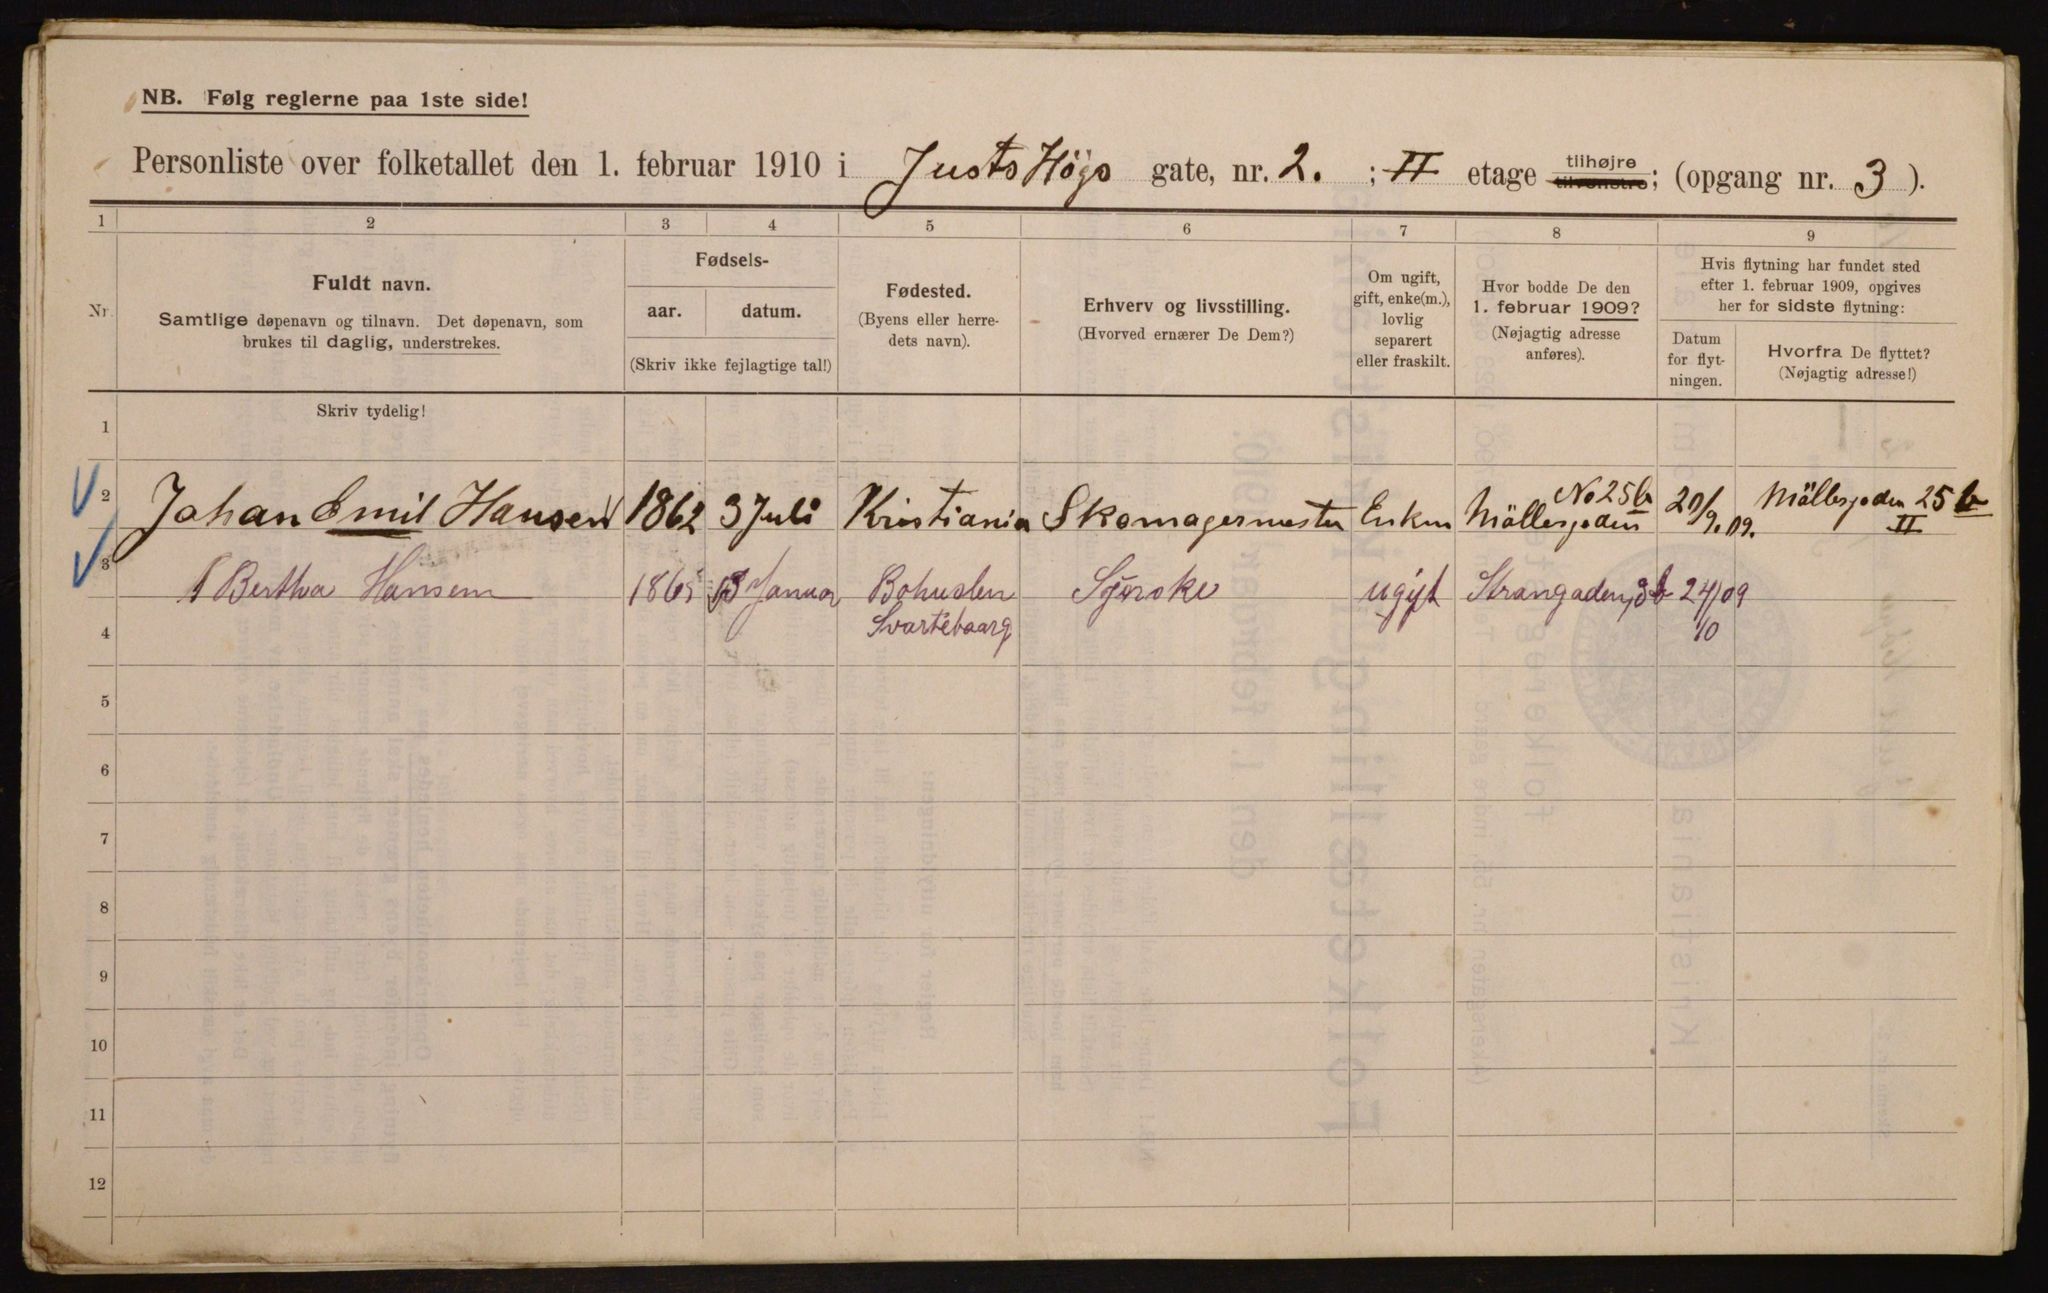 NB. Følg reglerne paa 1ste side!
Personliste over folketallet den 1. februar 1910 i Justs Høgs gate, nr. 2. ; II etage tilhøjre tilvenstre; (opgang nr. 3).
1 2 3 4 5 6 7 8 9
Nr.
Fuldt navn.
Samtlige døpenavn og tilnavn. Det døpenavn, som
brukes til daglig, understrekes.
Skriv tydelig!
Fødsels-
aar. datum.
(Skriv ikke fejlagtige tal!)
Fødested.
(Byens eller herre-
dets navn).
Erhverv og livsstilling.
(Hvorved ernærer De Dem?)
Om ugift,
gift, enke(m.),
lovlig
separert
eller fraskilt.
Hvor bodde De den
1. februar 1909?
(Nøjagtig adresse
anføres).
Hvis flytning har fundet sted
efter 1. februar 1909, opgives
her for sidste flytning:
Datum
for flyt-
ningen.
Hvorfra De flyttet?
(Nøjagtig adresse!)
1
2 Johan Emil Hansen 1862 3 Juli Kristiania Skomagermester Enkm No 25 b Möllergaden 20/9.09. Möllegaden 25 b II
3 Bertha Hansen 1865 13 Januar Bohuslen Syerske ugift 24/09
4 Svartebaarg 10
5
6
7
8
9
10
11
12